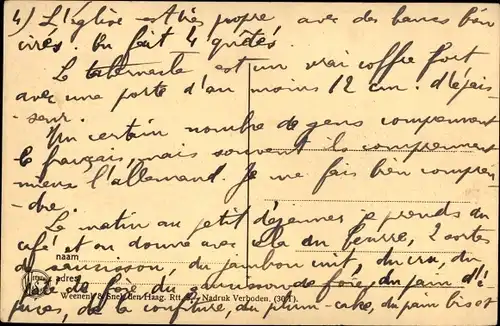 4) L'église est très propre avec des bancs bien
cirés. On fait 4 quêtes.
Le tabernacle est un vrai coffre fort
avec une porte d'au moins 12 cm. d'épais-
seur.
Un certain nombre de gens comprennent
le français, mais souvent ils comprennent
mieux l'allemand. Je me fais bien compren
-dre.
Le matin au petit déjeuner je prends du
café et on donne avec cela du beurre, 2 sortes
de saucisson, du jambon cuit, du cru, du
naam
pâté de foie, du saucisson de foie, du pain d'é
adres
Weenenk & Snel, den Haag. Nadruk Verboden.
pices, de la confiture, du plum-cake, du pain biset